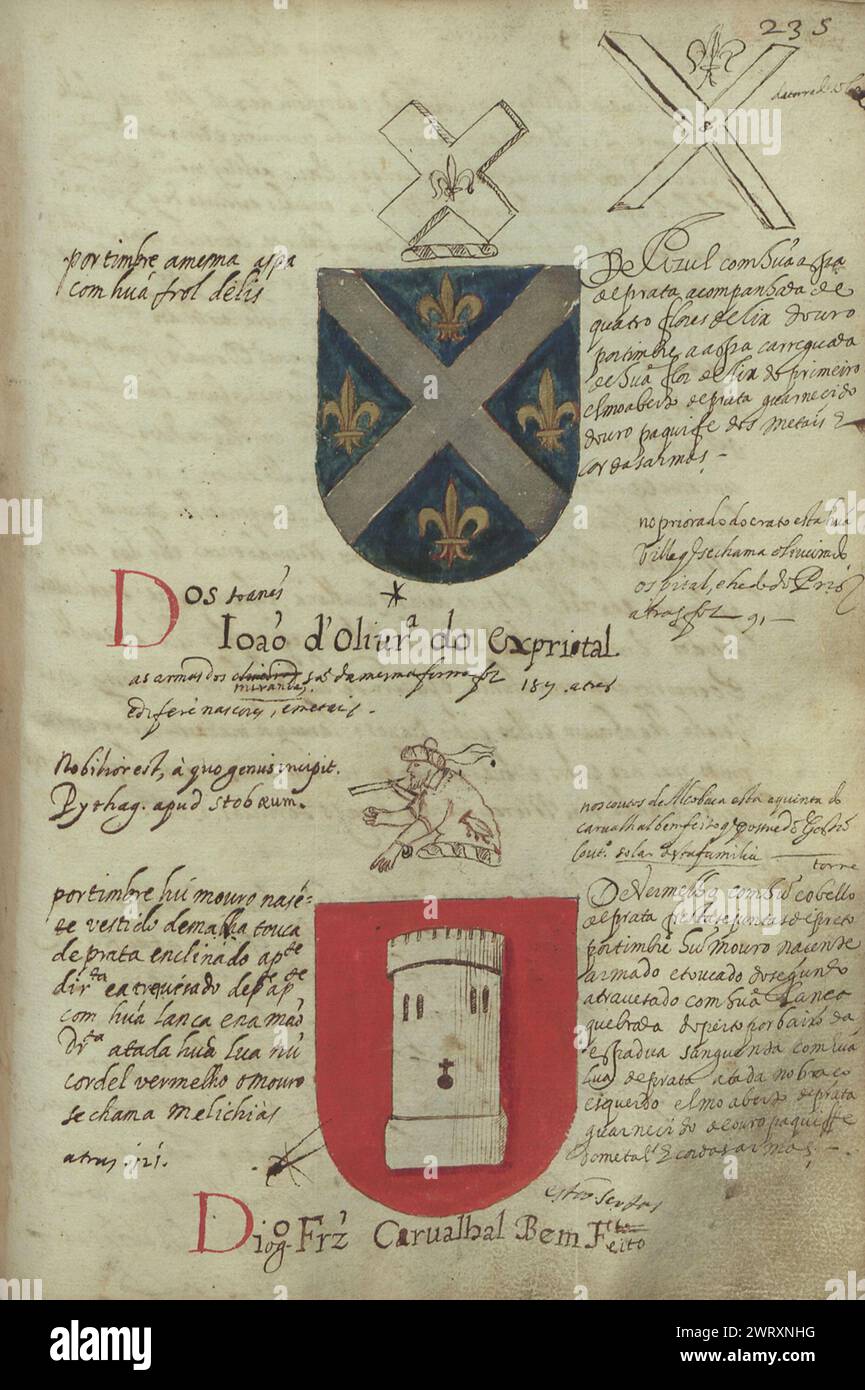 235
da torre do
por timbre a mesma aspa
com huá frol delis
De Azul com huá aspa
de prata acompanhada de
quatro flores de lix douro
por timbre a aspa carreguada
de huá flor de lix do primeiro
elmo aberto de prata guarnecido
douro paquife dos metais &
cor das armas. –
no priorado do crato está huá
Villa q se chama oliueira do
ospital, e he do do Prior
atras fol 91 –
Dos Joanes
Ioaõ d'Oliur.ª do Expriotal
as armas dos miranda, saõ da mesma forma fol 187 atras
e diferé nas cores, e metais.
Nobilior est, à quo genus incipit.
Pythag. apud stobæum.
nos coutos de Alcobaça está a quinta do
carualhal bemfeito q
solar desta familia
torre
por timbre hú mouro nasé=
te vestido de malha touca
de prata enclinado ap.te
dir.ta e atrauesado de p.te ap.te
com huá lança e na maõ
Dr.ta atada huá lua nú
cordel vermelho o mouro
se chama melichias
atras . 121.
De Vermelho com hú cobello
de prata frestas e portas de preto
por timbre hú mouro nacente
armado e toucado do segundo
atrauesado com huá Lança
quebrada do peito por baixo da
espadua sanguenta com huá
lua de prata atada no braço
esquerdo elmo aberto de prata
guarnecido de ouro paquiffe
do metal & cor das armas. –
Diog.º Frz Carualhal Bem Feito
alamy
Image ID: 2WRXNHG
www.alamy.com